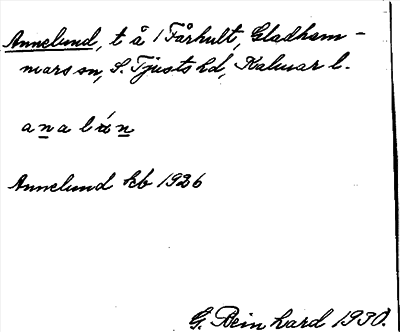 Annelund, t å 1 Fårhult, Gladham-
mars sn, S. Tjusts hd, Kalmar l.
Annelund kb 1926
G. Beinhard 1930.